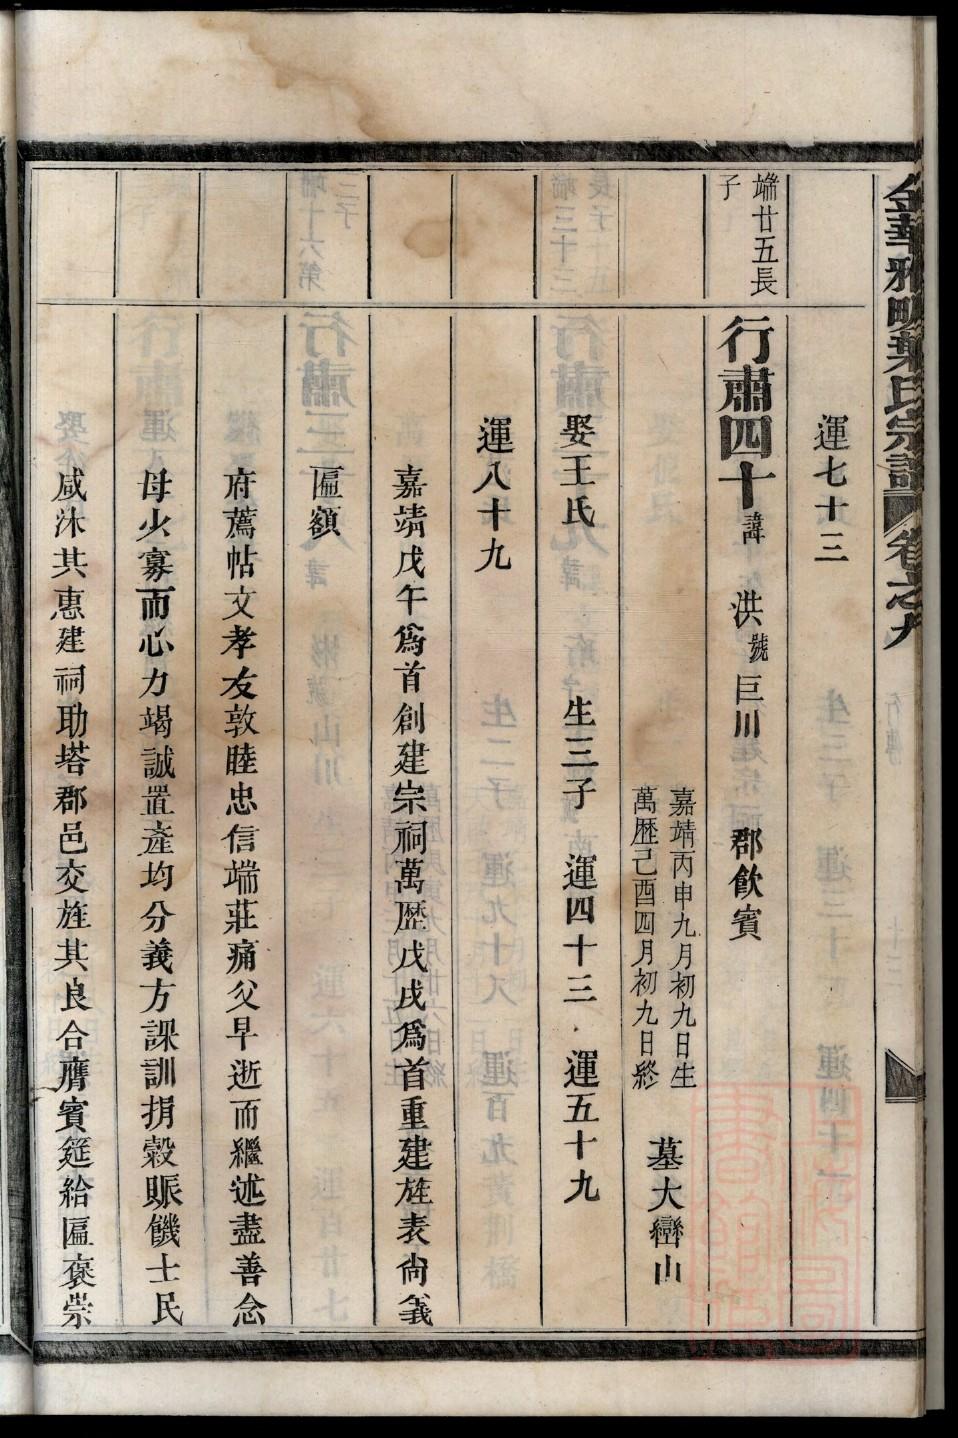 金華雅畈葉氏宗譜 卷之九
運七十三
端廿五長
子
行肅四十 諱 洪 號 巨川 郡飲賓
嘉靖丙申九月初九日生
萬歷己酉四月初九日終
墓大巒山
娶王氏 生三子 運四十三 運五十九
運八十九
嘉靖戊午爲首創建宗祠萬歷戊戌爲首重建旌表尙義
匾額
府薦帖文孝友敦睦忠信端莊痛父早逝而繼述盡善念
母少寡而心力竭誠置產均分義方課訓捐穀賑饑士民
咸沐其惠建祠助塔郡邑交旌其良合膺賓筵給匾褒崇